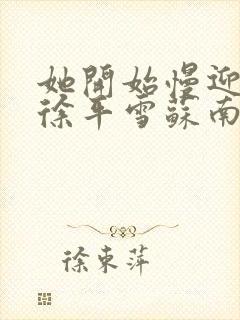 她開始慢迎
徐平雪蘇南
徐東萍